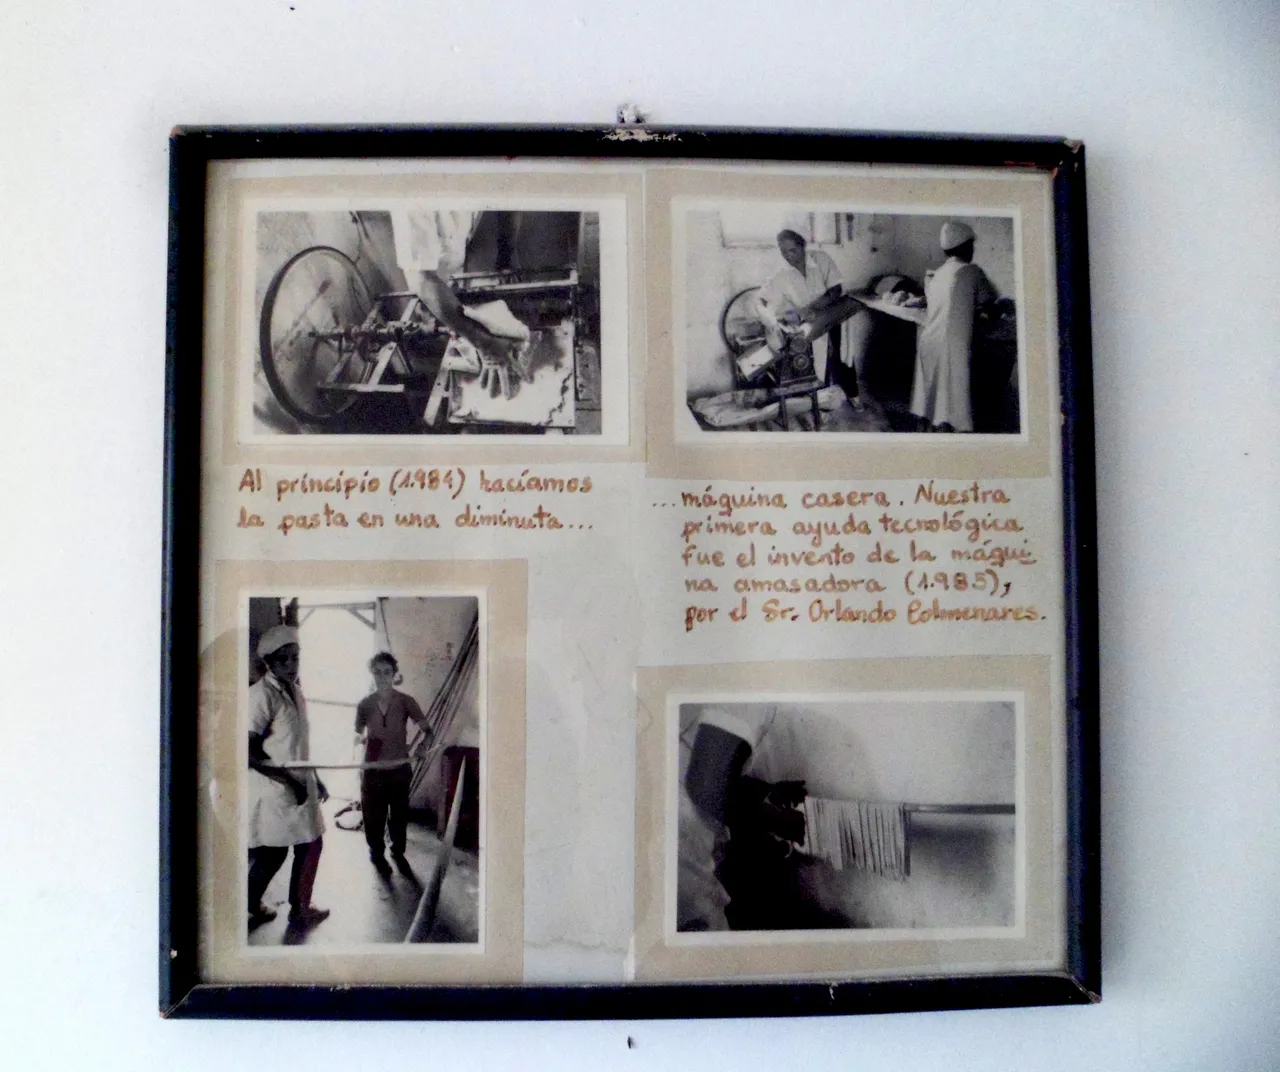 Al principio (1.984) hacíamos
la pasta en una diminuta...
...máquina casera. Nuestra
primera ayuda tecnológica
fue el invento de la máqui
na amasadora (1.985),
por el Sr. Orlando Colmenares.